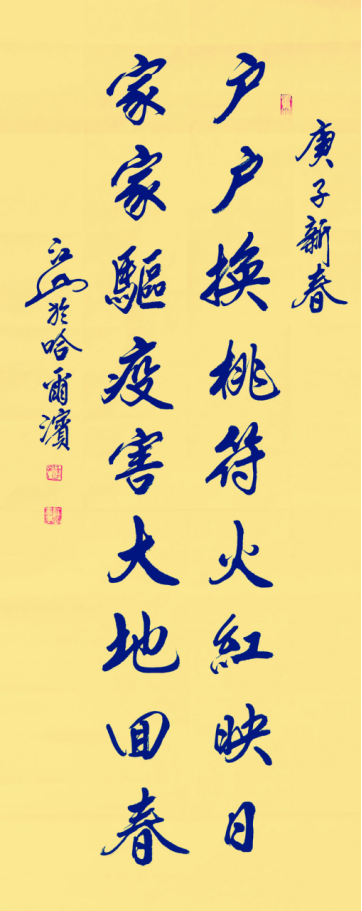 庚子新春
户户換桃符火紅映日
家家驅疫害大地回春
江山於哈爾濱